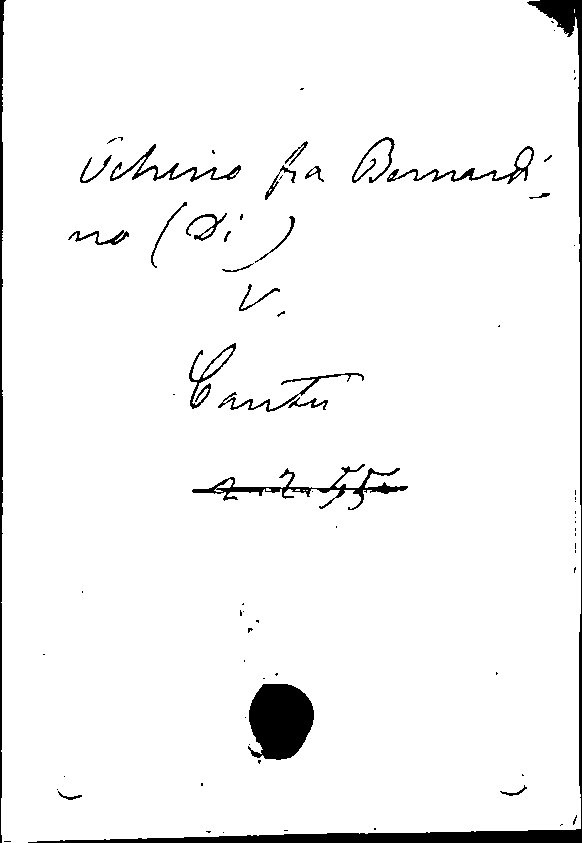 Ochino fra Bernardi-
no (Di)
V.
Cantu
2.2.55